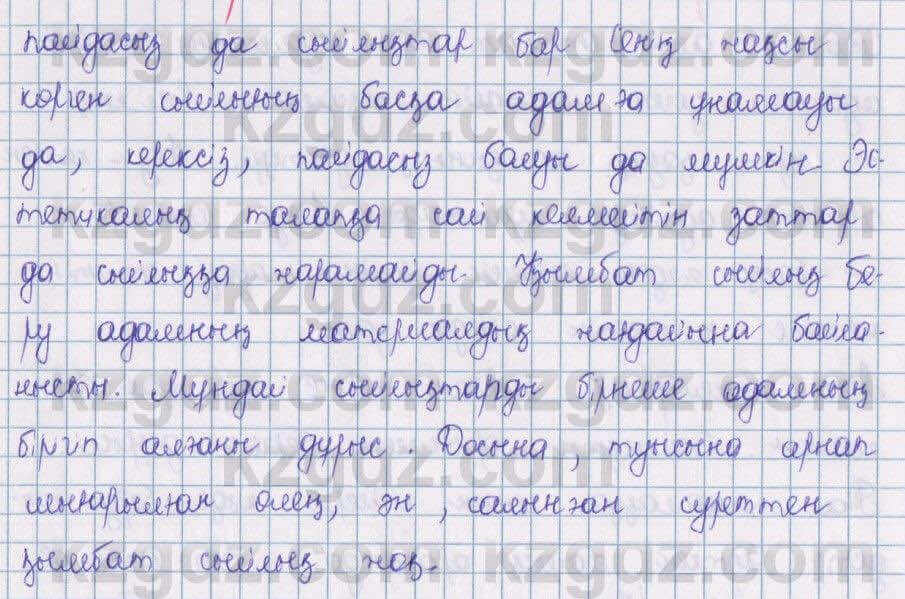 пайдасыз да сыйлықтар бар. Сенің жақсы
көрген сыйлығың басқа адамға ұнамауы
да, керексіз, пайдасыз болуы да мүмкін. Эс-
тетикалық талапқа сай келмейтін заттар
да сыйлыққа жарамайды. Қымбат сыйлық бе-
ру адамның материалдық жағдайына байла-
нысты. Мұндай сыйлықтарды бірнеше адамның
бірігіп алғаны дұрыс. Досына, туысына арнап
шығарылған өлең, ән, салынған суреттен
қымбат сыйлық жоқ.